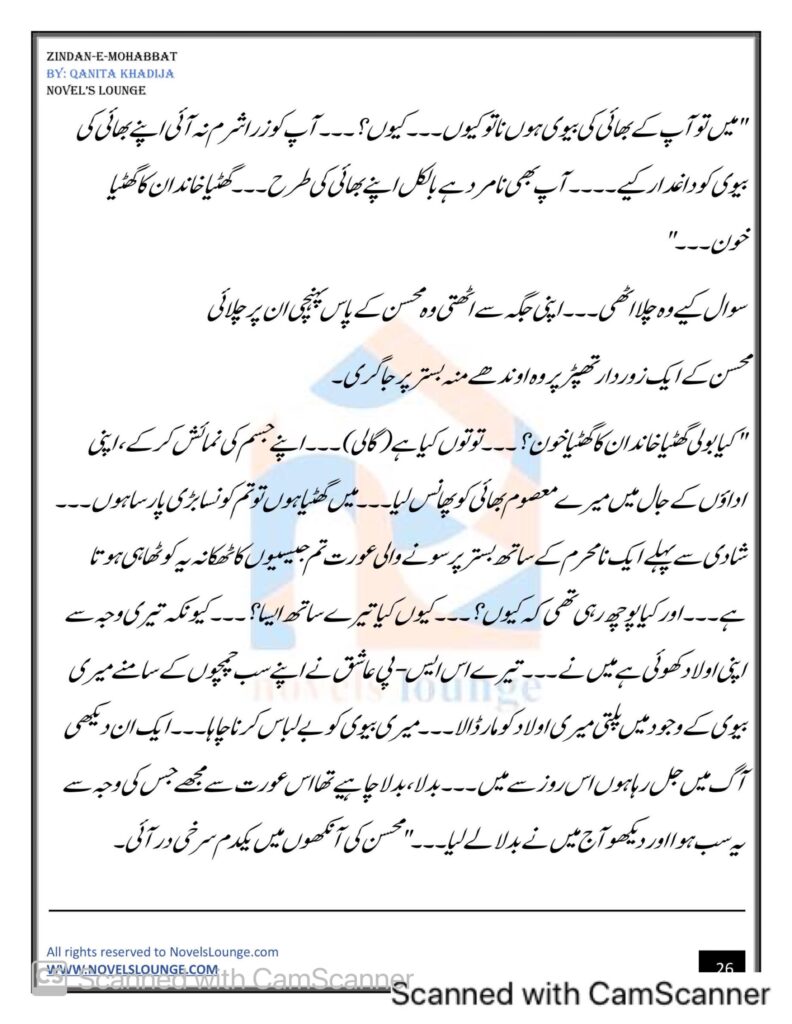 ZINDAN-E-MOHABBAT
BY: QANITA KHADIJA
NOVEL'S LOUNGE
"میں تو آپ کے بھائی کی بیوی ہوں نا تو کیوں۔۔۔ کیوں؟۔۔۔ آپ کو زرا شرم نہ آئی اپنے بھائی کی
بیوی کو داغدار کیے۔۔۔۔ آپ بھی نامرد ہے بالکل اپنے بھائی کی طرح۔۔۔ گھٹیا خاندان کا گھٹیا
خون۔۔۔"
سوال کیے وہ چلا اٹھی۔۔۔ اپنی جگہ سے اٹھتی وہ محسن کے پاس پہنچی ان پر چلائی
محسن کے ایک زوردار تھپڑ پر وہ اوندھے منہ بستر پر جا گری۔
"کیا بولی گھٹیا خاندان کا گھٹیا خون؟۔۔۔ تو توں کیا ہے (گالی)۔۔۔ اپنے جسم کی نمائش کر کے، اپنی
اداؤں کے جال میں میرے معصوم بھائی کو پھانس لیا۔۔۔ میں گھٹیا ہوں تو تم کونسا بڑی پارسا ہوں۔۔۔
شادی سے پہلے ایک نامحرم کے ساتھ بستر پر سونے والی عورت تم جیسیوں کا ٹھکانہ یہ کوٹھا ہی ہوتا
ہے۔۔۔ اور کیا پوچھ رہی تھی کہ کیوں؟۔۔۔ کیوں کیا تیرے ساتھ ایسا؟۔۔۔ کیونکہ تیری وجہ سے
اپنی اولاد کھوئی ہے میں نے۔۔۔ تیرے اس ایس-پی عاشق نے اپنے سب چمچوں کے سامنے میری
بیوی کے وجود میں پلتی میری اولاد کو مار ڈالا۔۔۔ میری بیوی کو بے لباس کرنا چاہا۔۔۔ ایک ان دیکھی
آگ میں جل رہا ہوں اس روز سے میں۔۔۔ بدلا، بدلا چاہیے تھا اس عورت سے مجھے جس کی وجہ سے
یہ سب ہوا اور دیکھو آج میں نے بدلا لے لیا۔۔۔" محسن کی آنکھوں میں یکدم سرخی در آئی۔
novels lounge
All rights reserved to NovelsLounge.com
26
WWW.NOVELSLOUNGE.COM
CS Scanned with CamScanner
Scanned with CamScanner